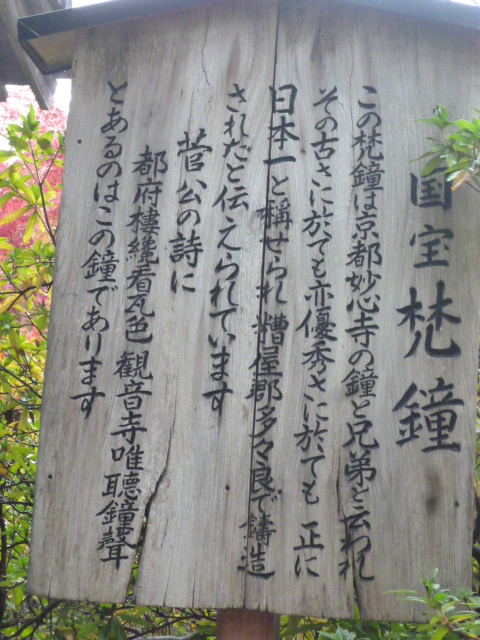 国宝梵鐘
この梵鐘は京都妙心寺の鐘と兄弟と云われ
その古さに於ても亦優秀さに於ても 正に
日本一と稱せられ糟屋郡多々良で鑄造
されたと伝えられています
菅公の詩に
都府樓纔看瓦色 觀音寺唯聽鐘聲
とあるのはこの鐘であります